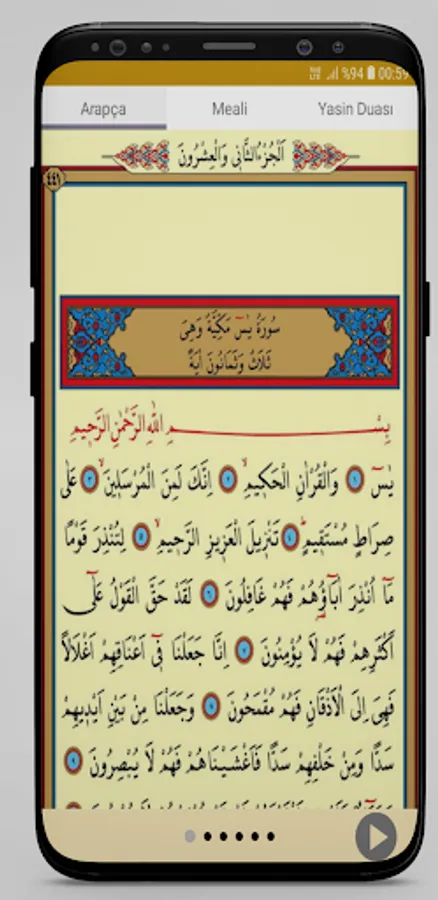 %94 00:59
Arapça Meali Yasin Duası
اَلْجُزْءُ الثَّانِي وَالْعِشْرُونَ
٤٤١
سُورَةُ يٰسٓ مَكِّيَّةٌ وَهِيَ
ثَلَاثٌ وَثَمَانُونَ اٰيَةً
بِسْمِ اللّٰهِ الرَّحْمٰنِ الرَّحِيمِ
يٰسٓ ١ وَالْقُرْاٰنِ الْحَكِيمِۙ ٢ اِنَّكَ لَمِنَ الْمُرْسَلِينَۙ ٣ عَلٰى
صِرَاطٍ مُسْتَقِيمٍۜ ٤ تَنْزِيلَ الْعَزِيزِ الرَّحِيمِۙ ٥ لِتُنْذِرَ قَوْمًا
مَٓا اُنْذِرَ اٰبَٓاؤُ۬هُمْ فَهُمْ غَافِلُونَ ٦ لَقَدْ حَقَّ الْقَوْلُ عَلٰٓى
اَكْثَرِهِمْ فَهُمْ لَا يُؤْمِنُونَ ٧ اِنَّا جَعَلْنَا فِٓي اَعْنَاقِهِمْ اَغْلَالًا
فَهِيَ اِلَى الْاَذْقَانِ فَهُمْ مُقْمَحُونَ ٨ وَجَعَلْنَا مِنْ بَيْنِ اَيْدِيهِمْ
سَدًّا وَمِنْ خَلْفِهِمْ سَدًّا فَاَغْشَيْنَاهُمْ فَهُمْ لَا يُبْصِرُونَ ٩